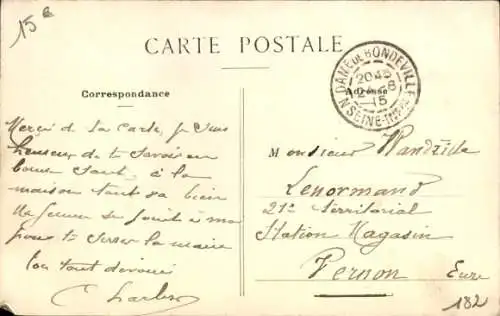 15e
CARTE POSTALE
N. DAME DE BONDEVILLE
20 45
2 - 8
15
SEINE-INFRE
Correspondance
Adresse
Merci de la carte, je suis
heureux de te savoir en
bonne santé, à la
maison tout va bien
se joint à moi
pour te serrer la main
ton tout dévoué
Charles
Monsieur
Lenormand
21e Territorial
Station Magasin
Vernon Eure
182